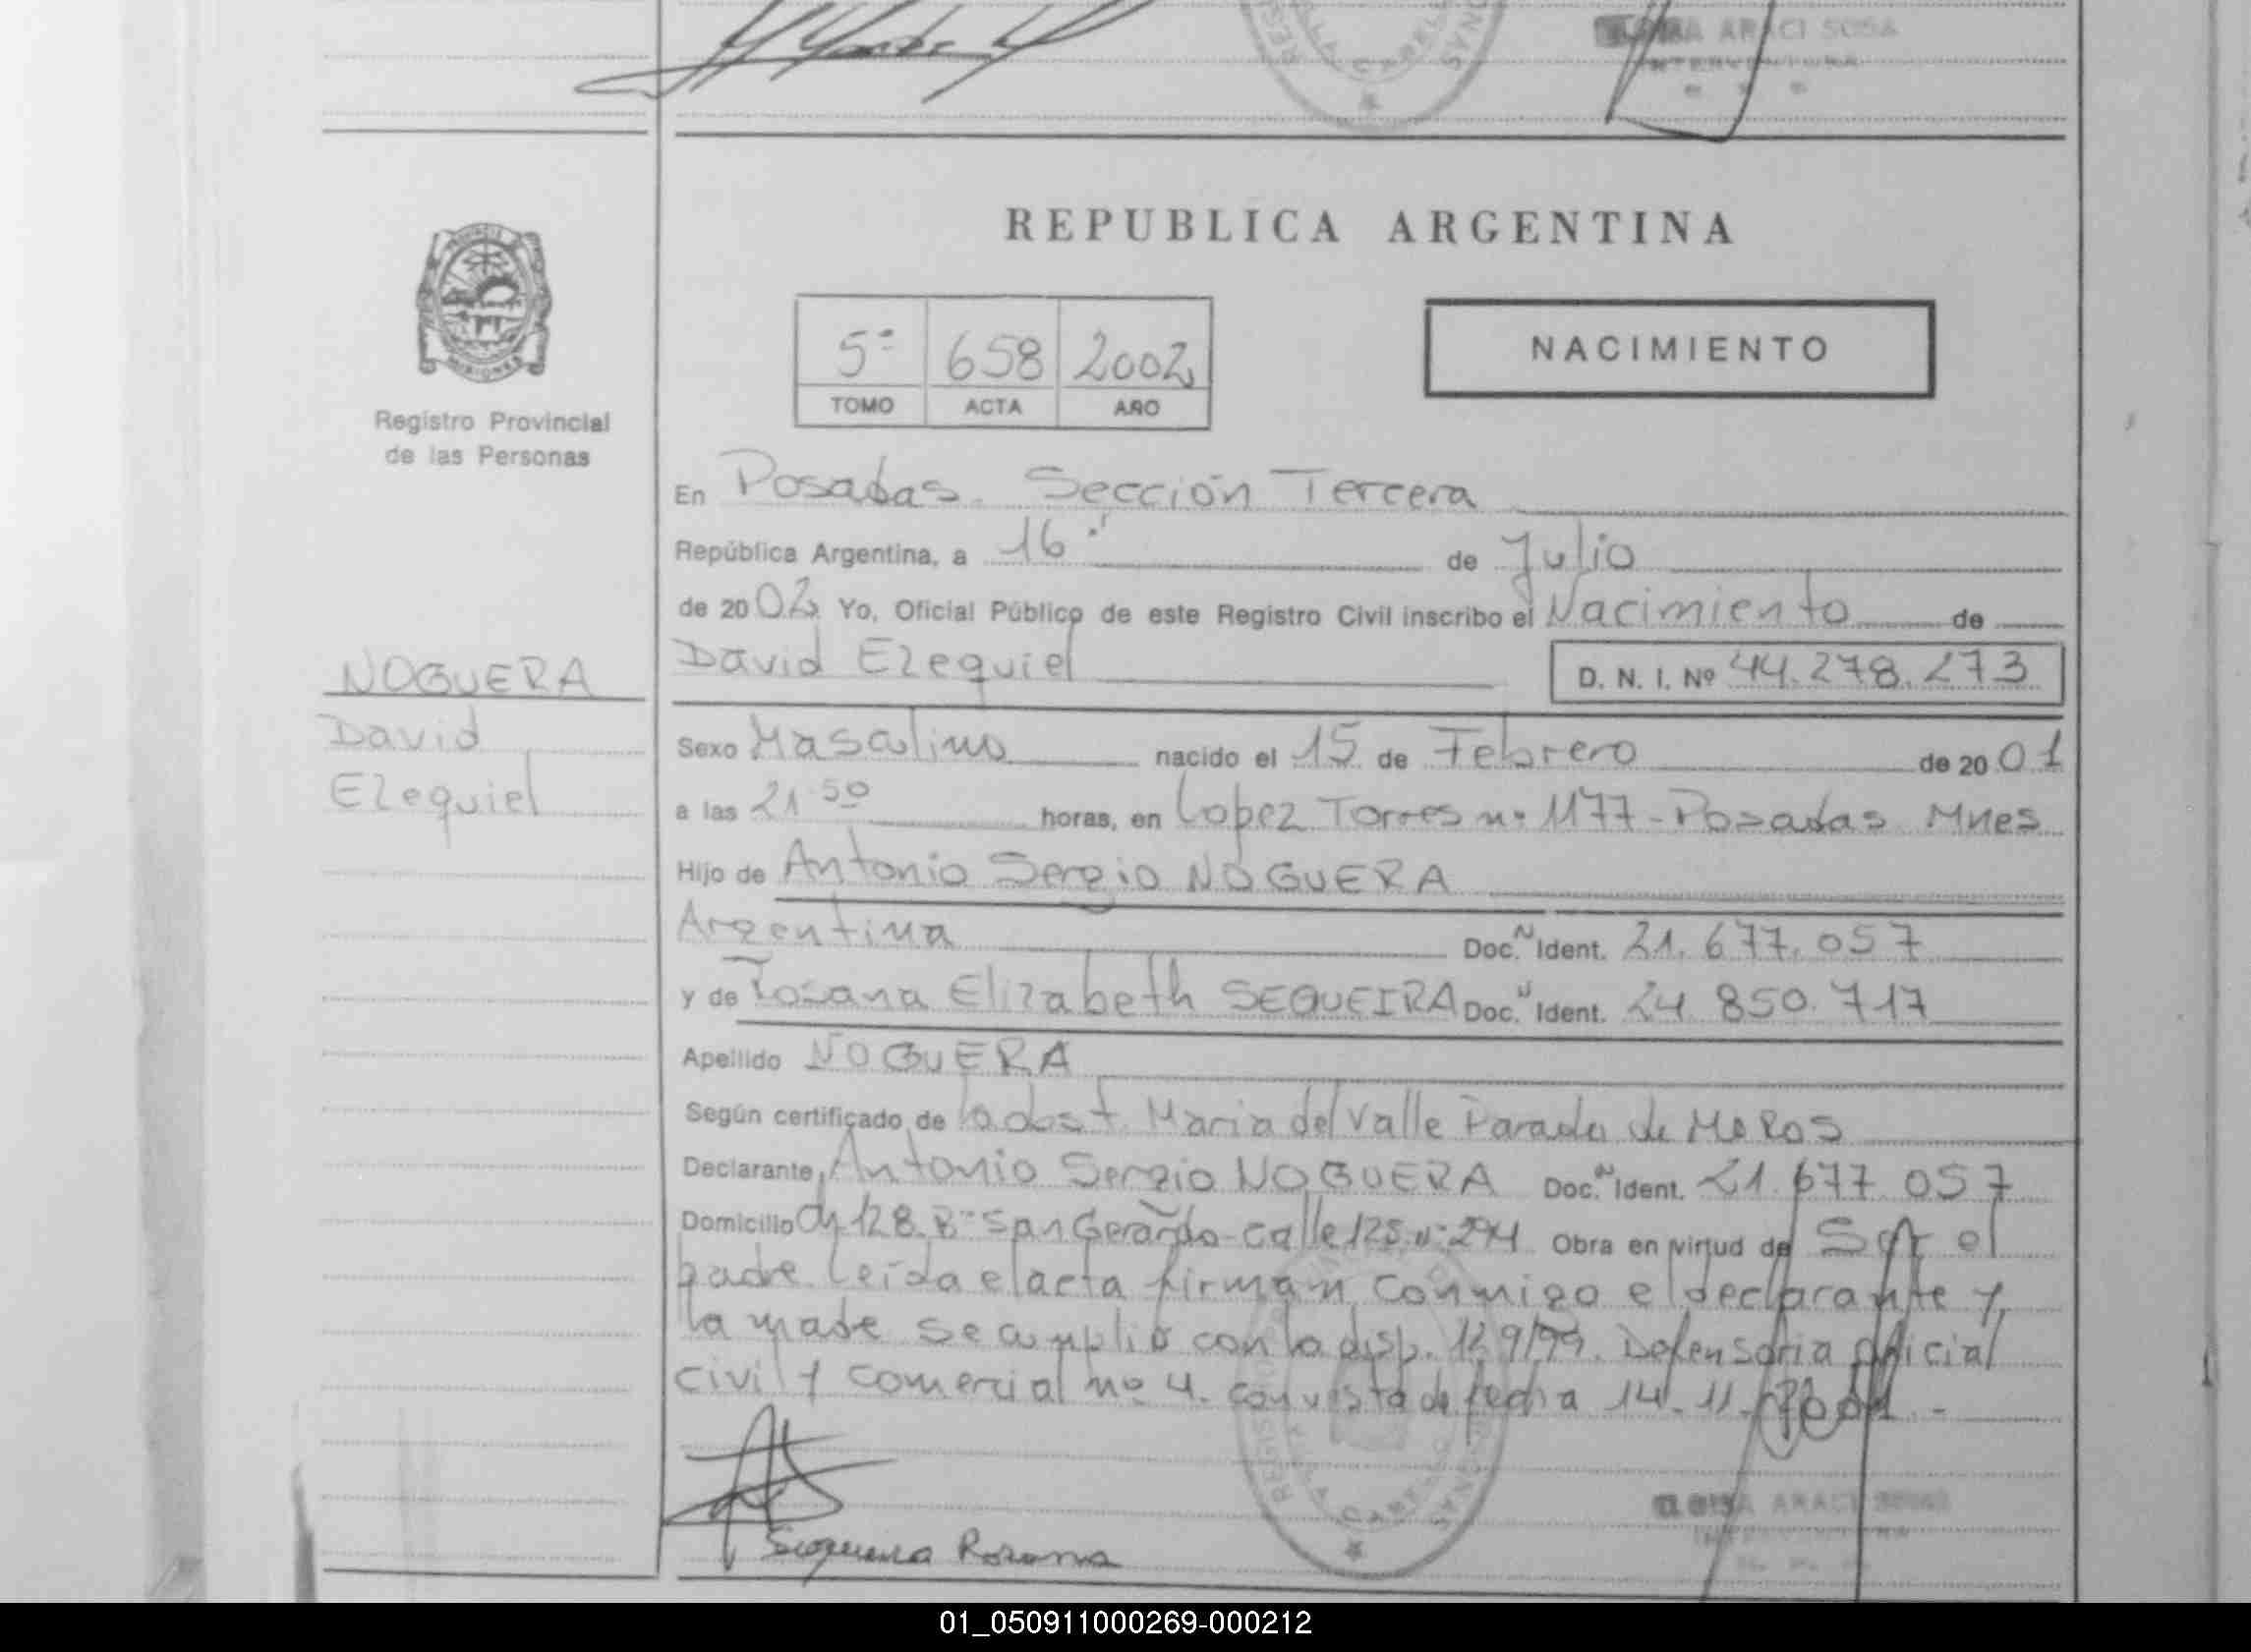 REPUBLICA ARGENTINA
5º 658 2002
TOMO ACTA AÑO
NACIMIENTO
Registro Provincial
de las Personas
En Posadas. Sección Tercera
República Argentina, a 16 de Julio
de 2002 Yo, Oficial Público de este Registro Civil inscribo el Nacimiento de
NOGUERA
David Ezequiel D. N. I. Nº 44.278.273
David
Ezequiel
Sexo Masculino nacido el 15 de Febrero de 2001
a las 21 50 horas, en Lopez Torres nº 1177 - Posadas Mnes
Hijo de Antonio Sergio NOGUERA
Argentina Doc. N Ident. 21.677.057
y de Rosana Elizabeth SEQUEIRA Doc. N Ident. 24.850.717
Apellido NOGUERA
Según certificado de la obst. Maria del Valle Parada de MOROS
Declarante, Antonio Sergio NOGUERA Doc. N Ident. 21.677.057
Domicilio Ch 128. Bº San Gerardo - Calle 125 nº 294 Obra en virtud de Ser el
padre. Leída el acta firman conmigo el declarante y
la madre se cumplió con la disp. 129/99. Defensoria oficial
civil y comercial nº 4. con vista de fecha 14.11.2001 -
Sequeira Rosana
01_050911000269-000212